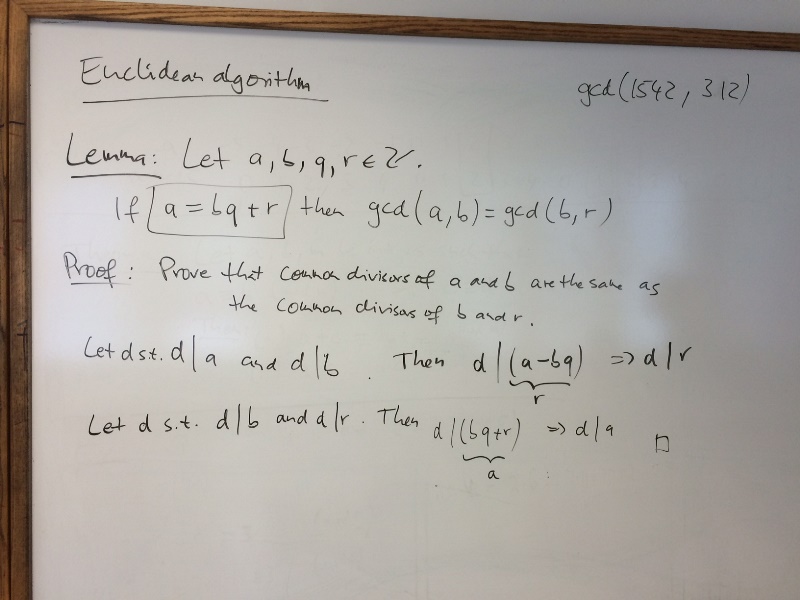 Euclidean algorithm
gcd(1542, 312)
Lemma: Let a, b, q, r ∈ ℤ.
If a = bq + r then gcd(a,b) = gcd(b,r)
Proof: Prove that common divisors of a and b are the same as
the common divisors of b and r.
Let d st. d|a and d|b. Then d|(a-bq) => d|r
r
Let d s.t. d|b and d|r. Then d|(bq+r) => d|a □
a